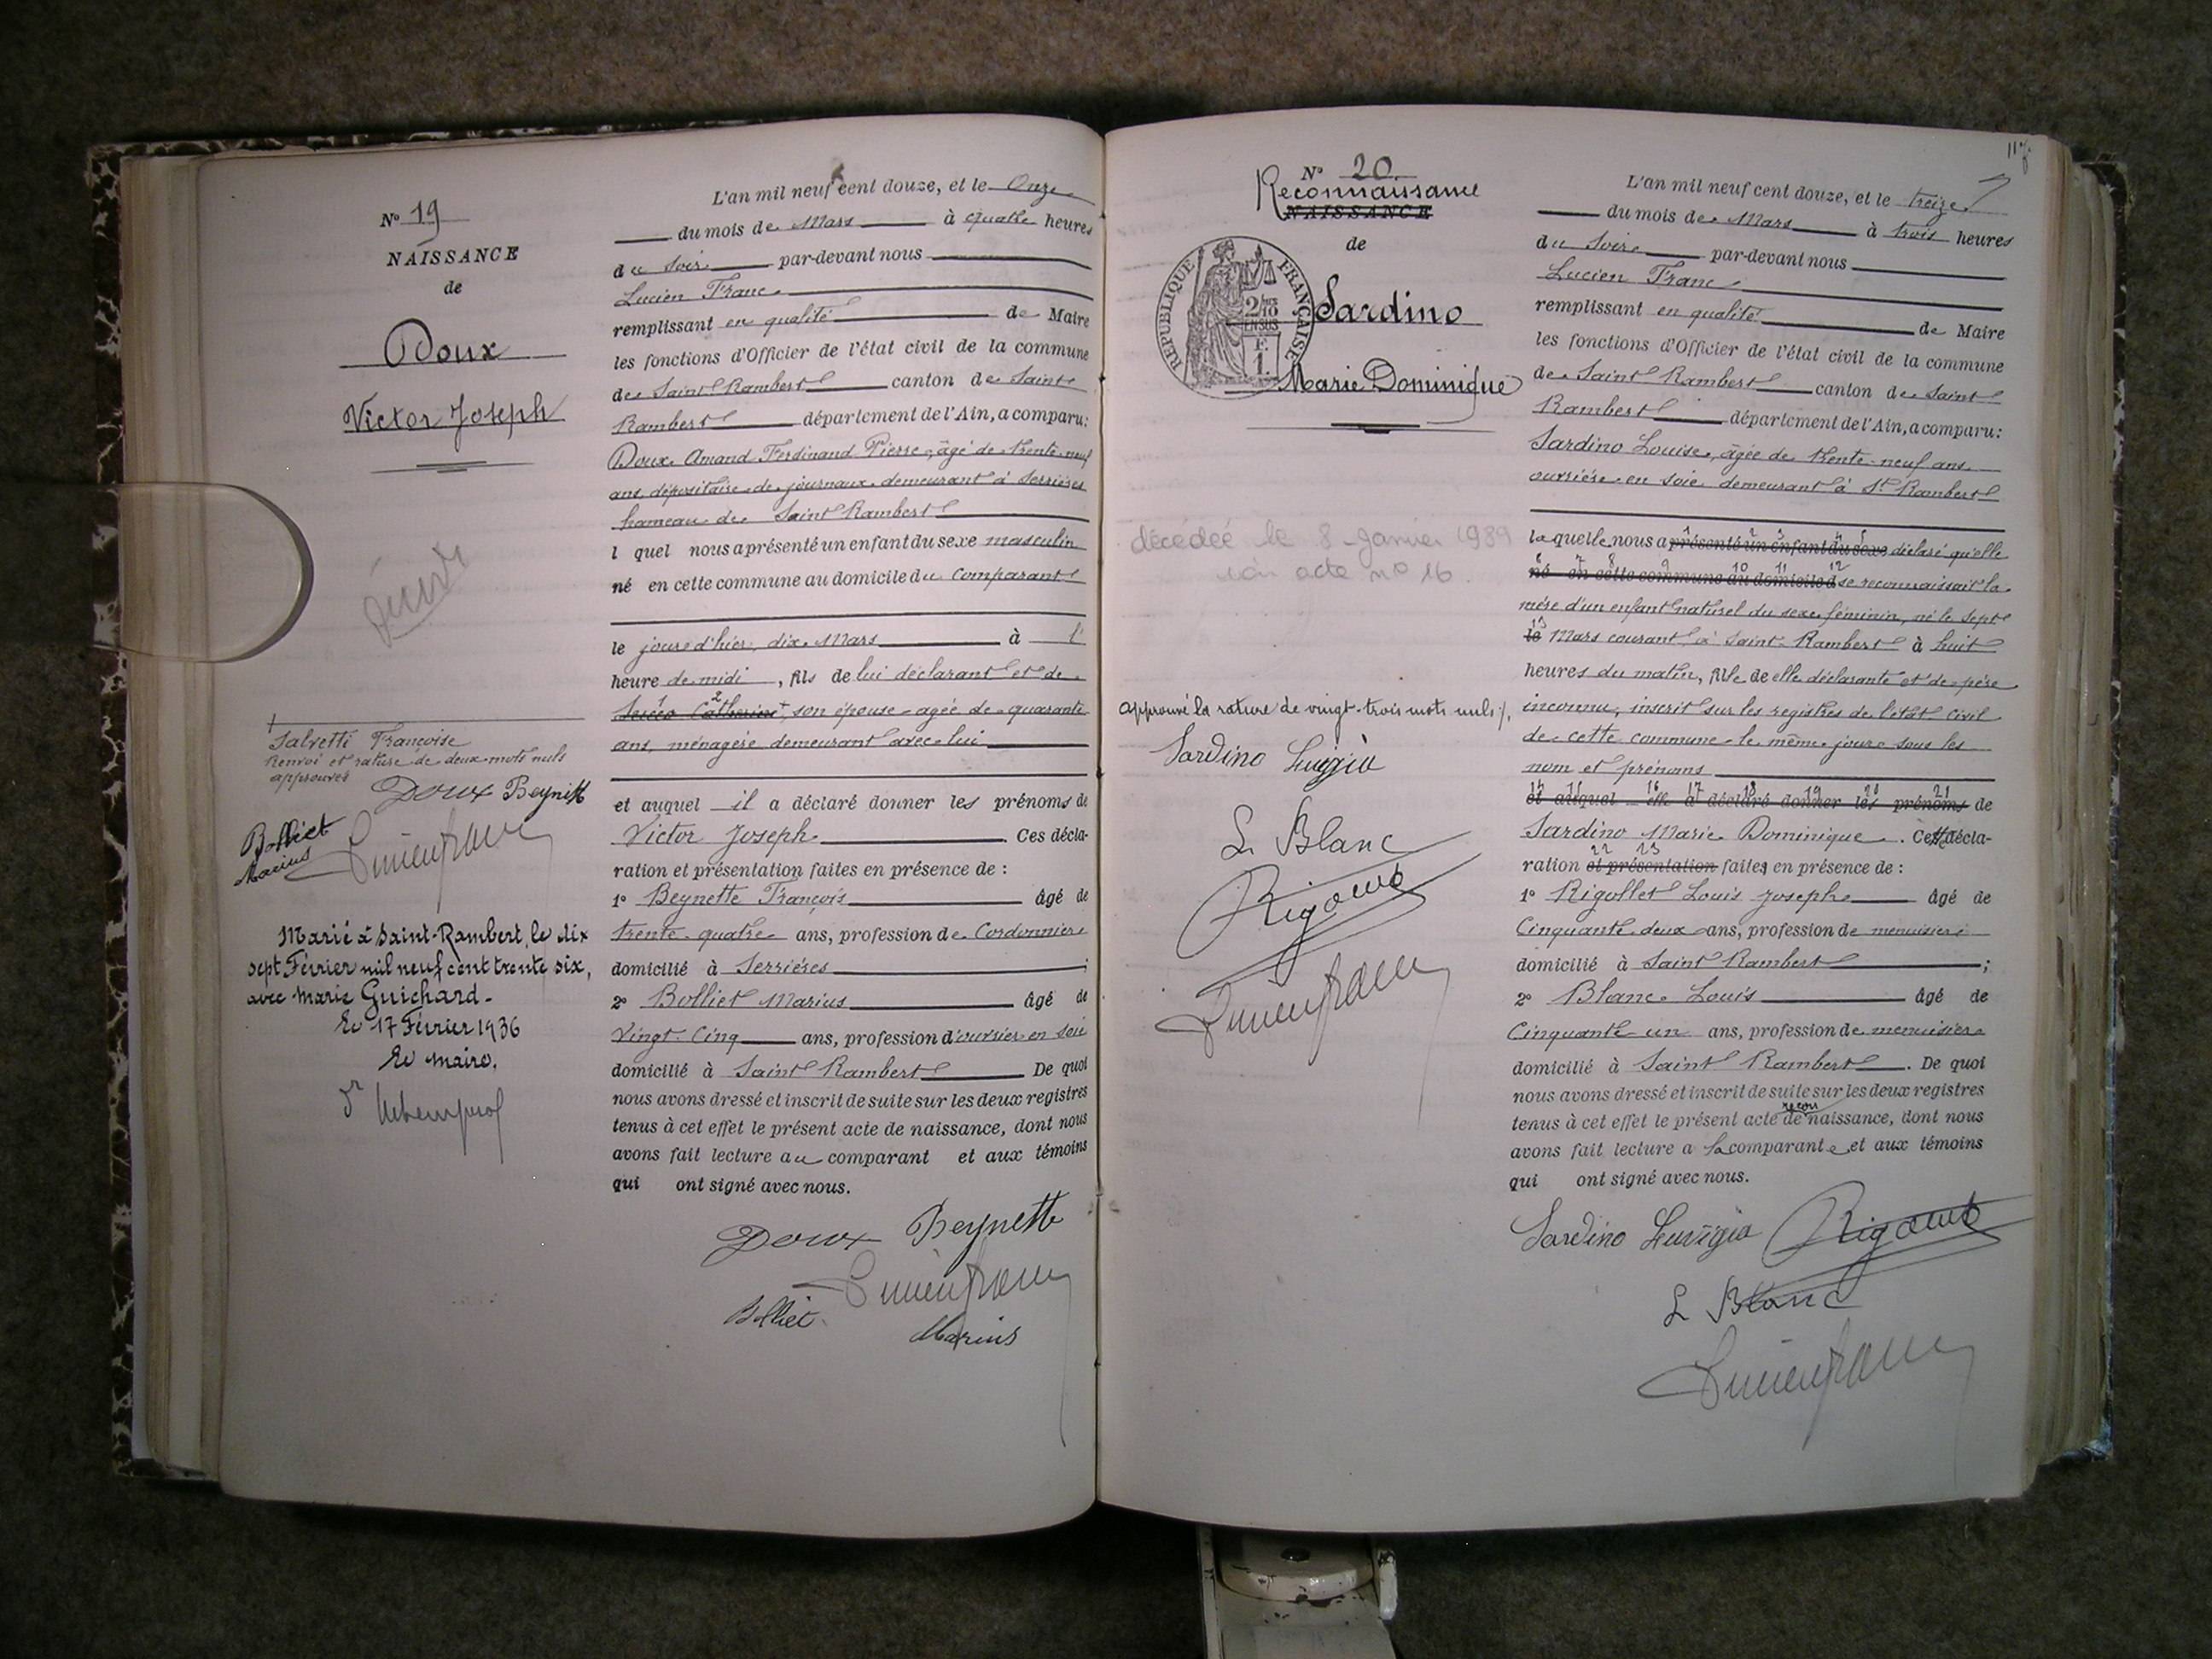 N° 19
NAISSANCE
de
Doux
Victor Joseph
décédé
Salvetti Françoise
Renvoi et rature de deux mots nuls
approuvés
Doux Beynette
Bolliet
Marius
Marié à Saint-Rambert, le dix
sept Février mil neuf cent trente six,
avec Marie Guichard.
Le 17 Février 1936
Le Maire,
L'an mil neuf cent douze, et le Onze
du mois de Mars à quatre heures
du Soir par-devant nous
Lucien Franc
remplissant en qualité de Maire
les fonctions d'Officier de l'état civil de la commune
de Saint Rambert canton de Saint
Rambert département de l'Ain, a comparu:
Doux Amand Ferdinand Pierre, âgé de trente-neuf
ans, dépositaire de journaux demeurant à Serrières
hameau de Saint Rambert
l quel nous a présenté un enfant du sexe masculin
né en cette commune au domicile du Comparant
le jour d'hier, dix Mars à l'
heure de midi, fils de lui déclarant et de
1 2 Catherine son épouse agée de quarante
ans, ménagère demeurant avec lui
et auquel il a déclaré donner les prénoms de
Victor Joseph. Ces décla-
ration et présentation faites en présence de :
1° Beynette François âgé de
trente-quatre ans, profession de Cordonnier
domicilié à Serrières ;
2° Bolliet Marius âgé de
Vingt-Cinq ans, profession d'ouvrier en soie
domicilié à Saint Rambert De quoi
nous avons dressé et inscrit de suite sur les deux registres
tenus à cet effet le présent acte de naissance, dont nous
avons fait lecture au comparant et aux témoins
qui ont signé avec nous.
Doux Beynette
Lucien Franc
Bolliet Marius
N° 20
Reconnaissance
NAISSANCE
de
RÉPUBLIQUE FRANÇAISE
2/10
EN SUS
F.
1.
Sardino
Marie Dominique
décédée le 8 Janvier 1989
acte n° 16.
approuvé la rature de vingt-trois mots nuls ./.
Sardino Luigia
L Blanc
Lucien Franc
L'an mil neuf cent douze, et le treize
du mois de Mars à trois heures
du Soir par-devant nous
Lucien Franc
remplissant en qualité de Maire
les fonctions d'Officier de l'état civil de la commune
de Saint Rambert canton de Saint
Rambert département de l'Ain, a comparu:
Sardino Louise, âgée de trente-neuf ans
ouvrière en soie demeurant à St Rambert
laquelle nous a présenté un enfant du sexe déclaré qu'elle
né en cette commune au domicile d se reconnaissait la
mère d'un enfant naturel du sexe féminin, né le sept
le Mars courant à Saint-Rambert à huit
heures du matin, fille de elle déclarante et de père
inconnu, inscrit sur les registres de l'état civil
de cette commune le même jour sous les
nom et prénoms
et auquel elle a déclaré donner les prénoms de
Sardino Marie Dominique. Cette décla-
ration et présentation faites en présence de :
1° Rigollet Louis Joseph âgé de
Cinquante deux ans, profession de menuisier
domicilié à Saint Rambert ;
2° Blanc Louis âgé de
Cinquante-un ans, profession de menuisier
domicilié à Saint Rambert. De quoi
nous avons dressé et inscrit de suite sur les deux registres
tenus à cet effet le présent acte de recon naissance, dont nous
avons fait lecture a la comparante et aux témoins
qui ont signé avec nous.
Sardino Luigia
L Blanc
Lucien Franc